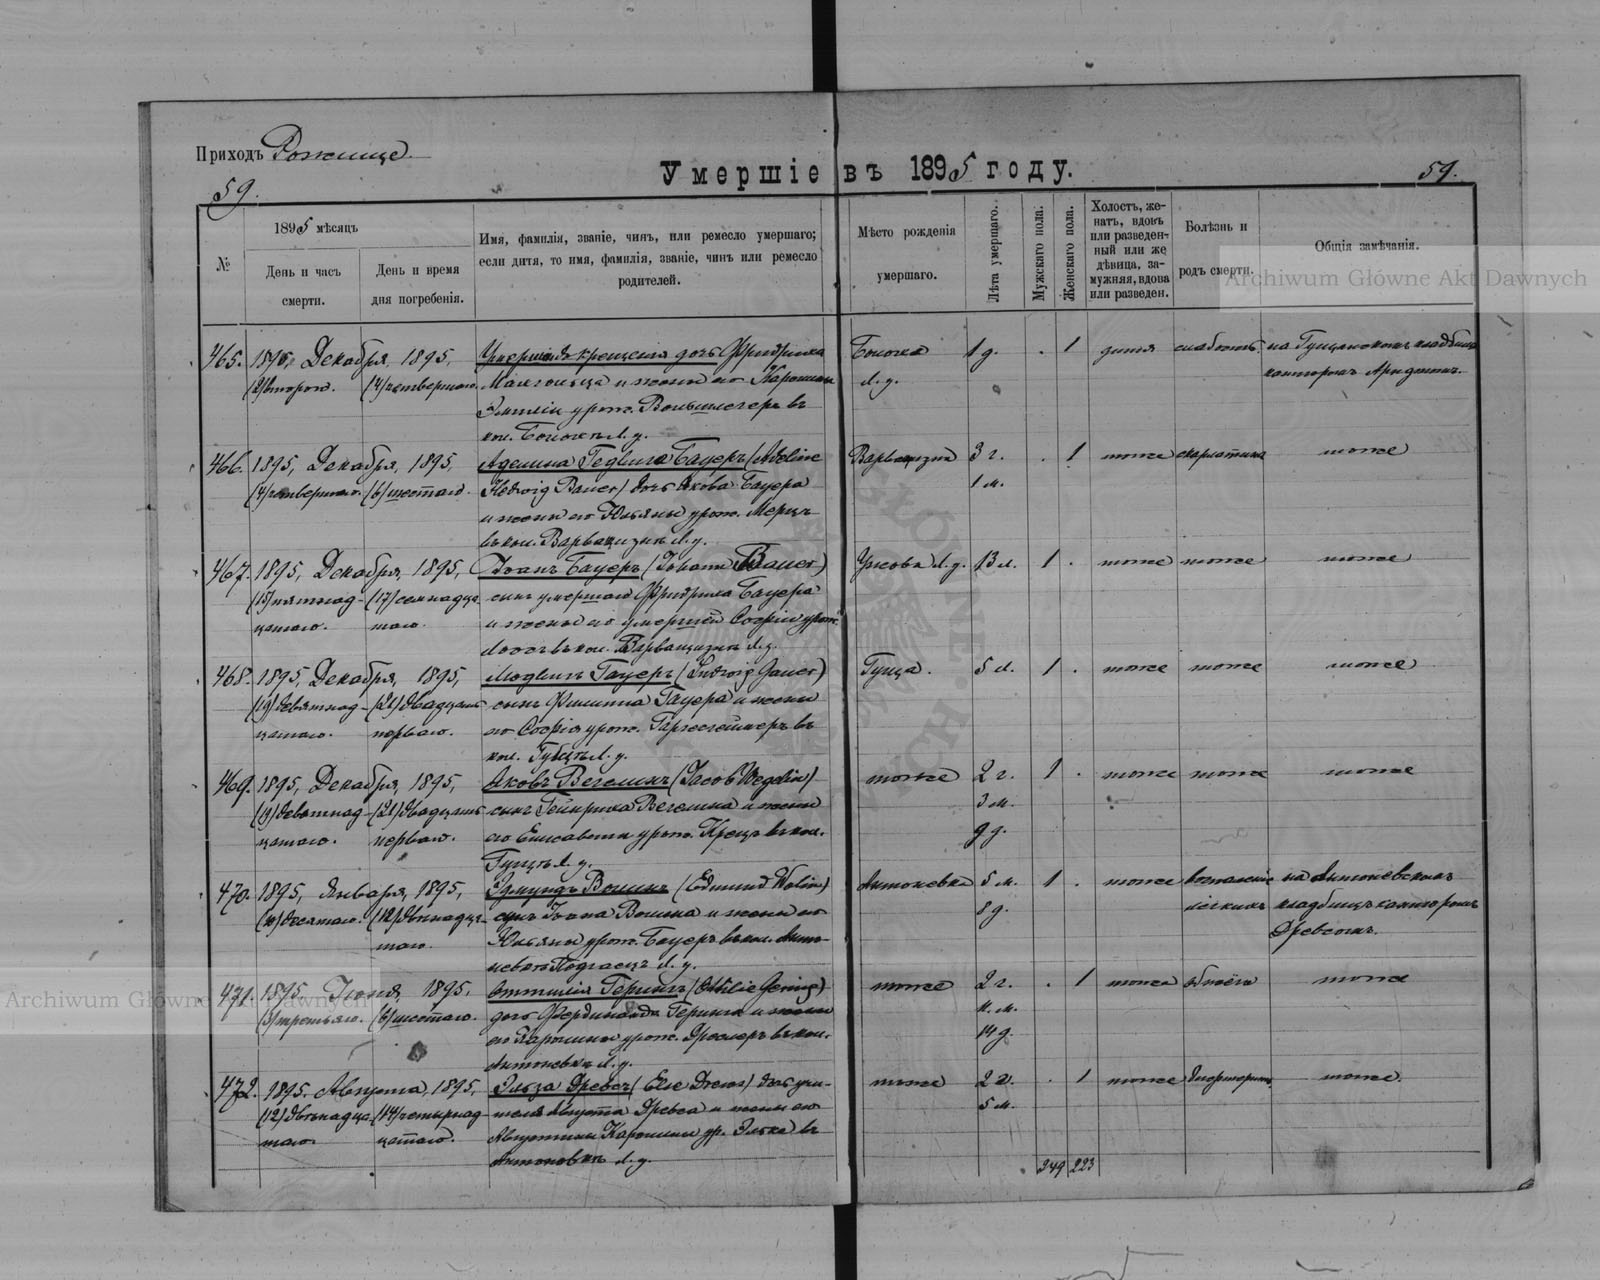 Приходъ Рожище.
Умершіе въ 1895 году.
59.
59.
№
1895 мѣсяцъ
День и часъ смерти.
День и время дня погребенія.
Имя, фамилія, званіе, чинъ, или ремесло умершаго;
если дитя, то имя, фамилія, званіе, чинъ или ремесло
родителей.
Мѣсто рожденія
умершаго.
Лѣта умершаго.
Мужскаго пола.
Женскаго пола.
Холостъ, же-
натъ, вдовъ
или разведен-
ный или же
дѣвица, за-
мужняя, вдова
или разведен.
Болѣзнь и
родъ смерти.
Общія замѣчанія.
Archiwum Główne Akt Dawnych
465. 1895, Декабря, 1895, дочь Фридриха 1 д. . 1 дитя слабость на кладбищѣ
(2) второго. (4) четвертаго. и жены его Каролины л. д. канторомъ
урож. въ
кол. л. д.
466. 1895, Декабря, 1895, Аделина Гедвига Бауеръ (Adeline 3 г. . 1 тоже скарлатина тоже
(4) четвертаго. (6) шестаго. Hedwig Bauer) дочь Якова Бауера 1 м.
и жены его Юльяны урож. Мерцъ
въ кол. л. д.
467. 1895, Декабря, 1895, Іоанъ Бауеръ (Johann Bauer) л. д. 13 л. 1 . тоже тоже тоже
(15) пятнад- (17) семнадца- сынъ умершаго Фридриха Бауера
цатаго. таго. и жены его умершей Софіи урож.
въ кол. л. д.
468. 1895, Декабря, 1895, Людвигъ Гауеръ (Ludwig Gauer) Гуща. 5 л. 1 . тоже тоже тоже
(19) девятнад- (21) двадцать сынъ Филиппа Гауера и жены
цатаго. перваго. его Софіи урож. въ
кол. л. д.
469. 1895, Декабря, 1895, Яковъ Вегелинъ (Jacob Wegelin) тоже 2 г. 1 . тоже тоже тоже
(19) девятнад- (21) двадцать сынъ Гейнриха Вегелина и жены 3 м.
цатаго. перваго. его Елисаветы урож. Крецъ въ кол. 9 д.
Гущѣ л. д.
470. 1895, Января, 1895, Эдмундъ Волинъ (Edmund Wolin) Антоневка 5 м. 1 . тоже воспаленіе на Антоневскомъ
(10) десятаго. (12) двѣнадца- сынъ Іоана Волина и жены его 8 д. легкихъ кладбищѣ канторомъ
таго. Юльяны урож. Бауеръ въ кол. Анто- Древсомъ.
невкѣ л. д.
471. 1895, Іюня, 1895, Оттилія Герингъ (Ottilie Gering) тоже 2 г. . 1 тоже тоже
(3) третьяго. (6) шестаго. дочь Фердинанда Геринга и жены м.
его Каролины урож. Дреслеръ въ кол. 14 д.
Антоневкѣ л. д.
Archiwum Główne Akt Dawnych
472. 1895, Августа, 1895, Эльза Древсъ (Else Drews) дочь учи- тоже 2 г. . 1 тоже дифтеритъ тоже.
(12) двѣнадца- (14) четырнад- теля Августа Древса и жены его 5 м.
таго. цатаго. Августины Каролины ур. въ
Антоневкѣ л. д.
249 223